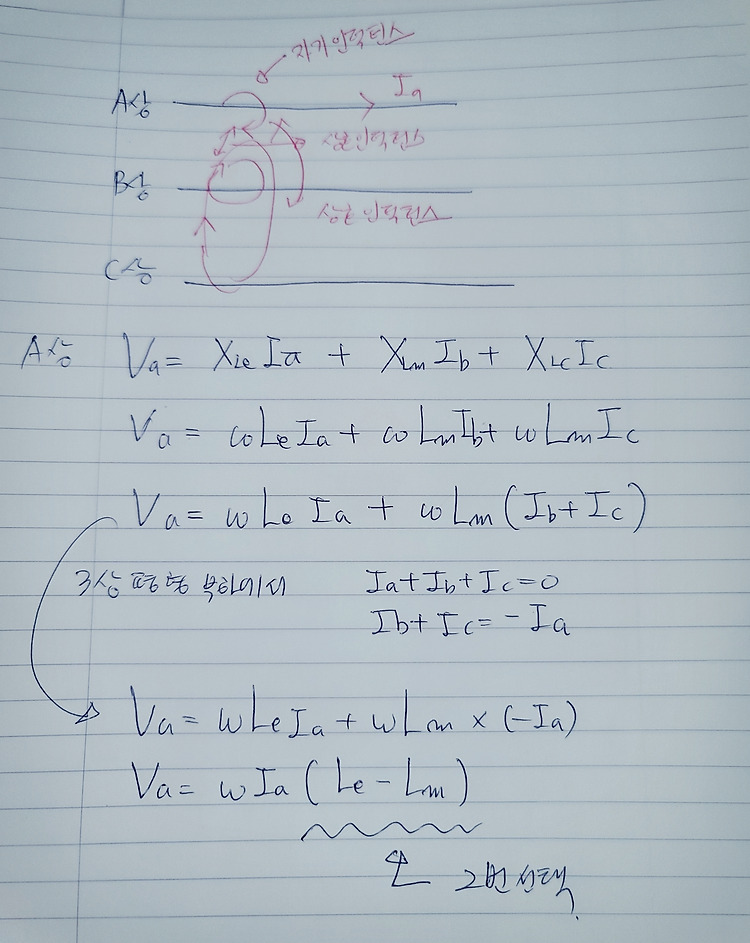 자기인덕턴스
A상 Ia
상호인덕턴스
B상
상호인덕턴스
C상
A상 Va = XLe Ia + XLm Ib + XLc Ic
Va = ωLe Ia + ωLm Ib + ωLm Ic
Va = ωLe Ia + ωLm (Ib + Ic)
3상 평형 부하에서 Ia + Ib + Ic = 0
Ib + Ic = - Ia
Va = ωLe Ia + ωLm × (-Ia)
Va = ωIa (Le - Lm)
2번 선택